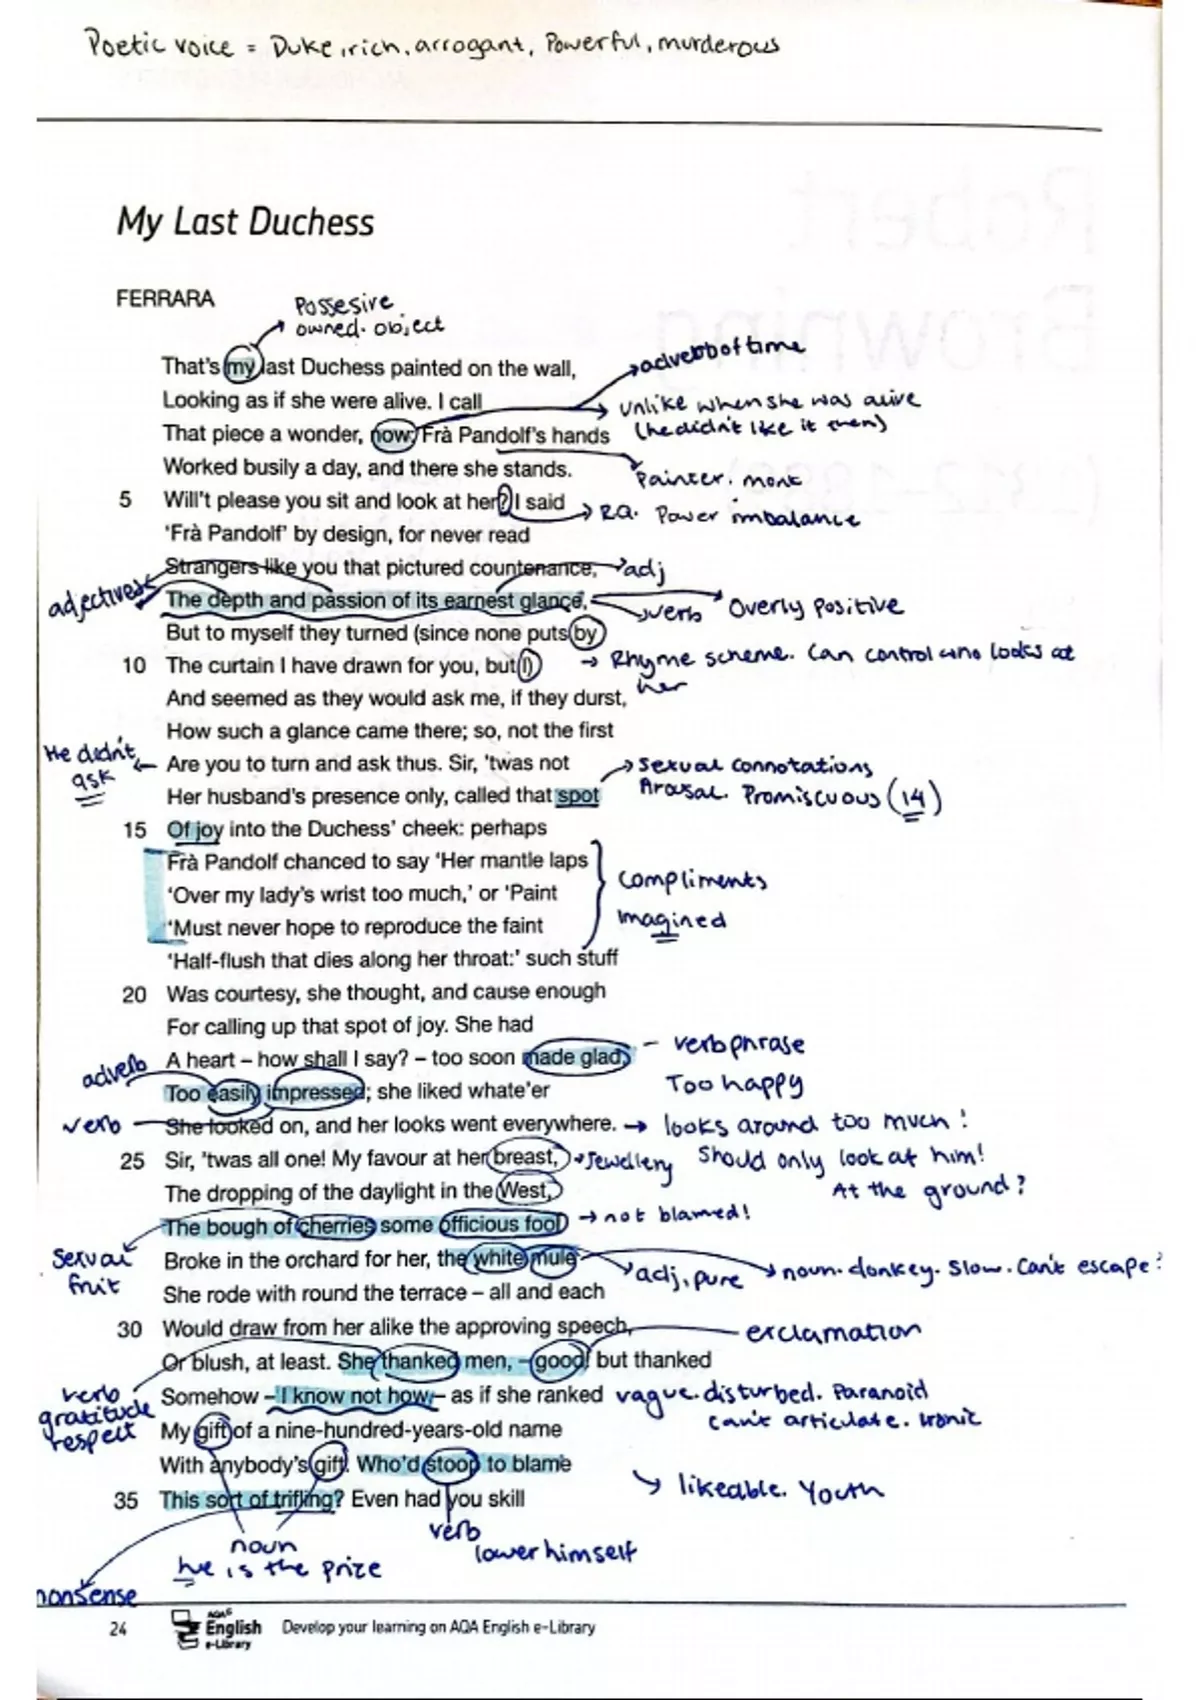 Poetic voice = Duke, rich, arrogant, Powerful, murderous
My Last Duchess
FERRARA
Possesive.
owned. object
That's my last Duchess painted on the wall,
adverb of time
Looking as if she were alive. I call
unlike when she was alive
(he didn't like it then)
That piece a wonder, now: Frà Pandolf's hands
Worked busily a day, and there she stands.
Painter. monk
5 Will't please you sit and look at her? I said
RQ. Power imbalance
'Frà Pandolf' by design, for never read
Strangers like you that pictured countenance,
adj
adjectives
The depth and passion of its earnest glance,
verb
Overly positive
But to myself they turned (since none puts by
10 The curtain I have drawn for you, but I)
Rhyme scheme. Can control who looks at
her
And seemed as they would ask me, if they durst,
How such a glance came there; so, not the first
He didn't
ask
Are you to turn and ask thus. Sir, 'twas not
Sexual connotations
Her husband's presence only, called that spot
Arousal. Promiscuous (14)
15 Of joy into the Duchess' cheek: perhaps
Frà Pandolf chanced to say 'Her mantle laps
'Over my lady's wrist too much,' or 'Paint
compliments
'Must never hope to reproduce the faint
Imagined
'Half-flush that dies along her throat:' such stuff
20 Was courtesy, she thought, and cause enough
For calling up that spot of joy. She had
A heart – how shall I say? – too soon made glad,
– verb phrase
Too happy
adverb
Too easily impressed; she liked whate'er
verb
She looked on, and her looks went everywhere.
looks around too much!
25 Sir, 'twas all one! My favour at her breast,
Jewellery
Should only look at him!
The dropping of the daylight in the West,
At the ground?
The bough of cherries some officious fool
not blamed!
sexual
fruit
Broke in the orchard for her, the white mule
adj, pure
noun. donkey. Slow. Can't escape?
She rode with round the terrace – all and each
30 Would draw from her alike the approving speech,
exclamation
Or blush, at least. She thanked men, – good! but thanked
verb
gratitude
respect
Somehow – I know not how – as if she ranked
vague. disturbed. Paranoid
can't articulate. Ironic
My gift of a nine-hundred-years-old name
With anybody's gift. Who'd stoop to blame
likeable. Youth
35 This sort of trifling? Even had you skill
noun
he is the prize
verb
lower himself
nonsense
24 AQA English e-Library Develop your learning on AQA English e-Library